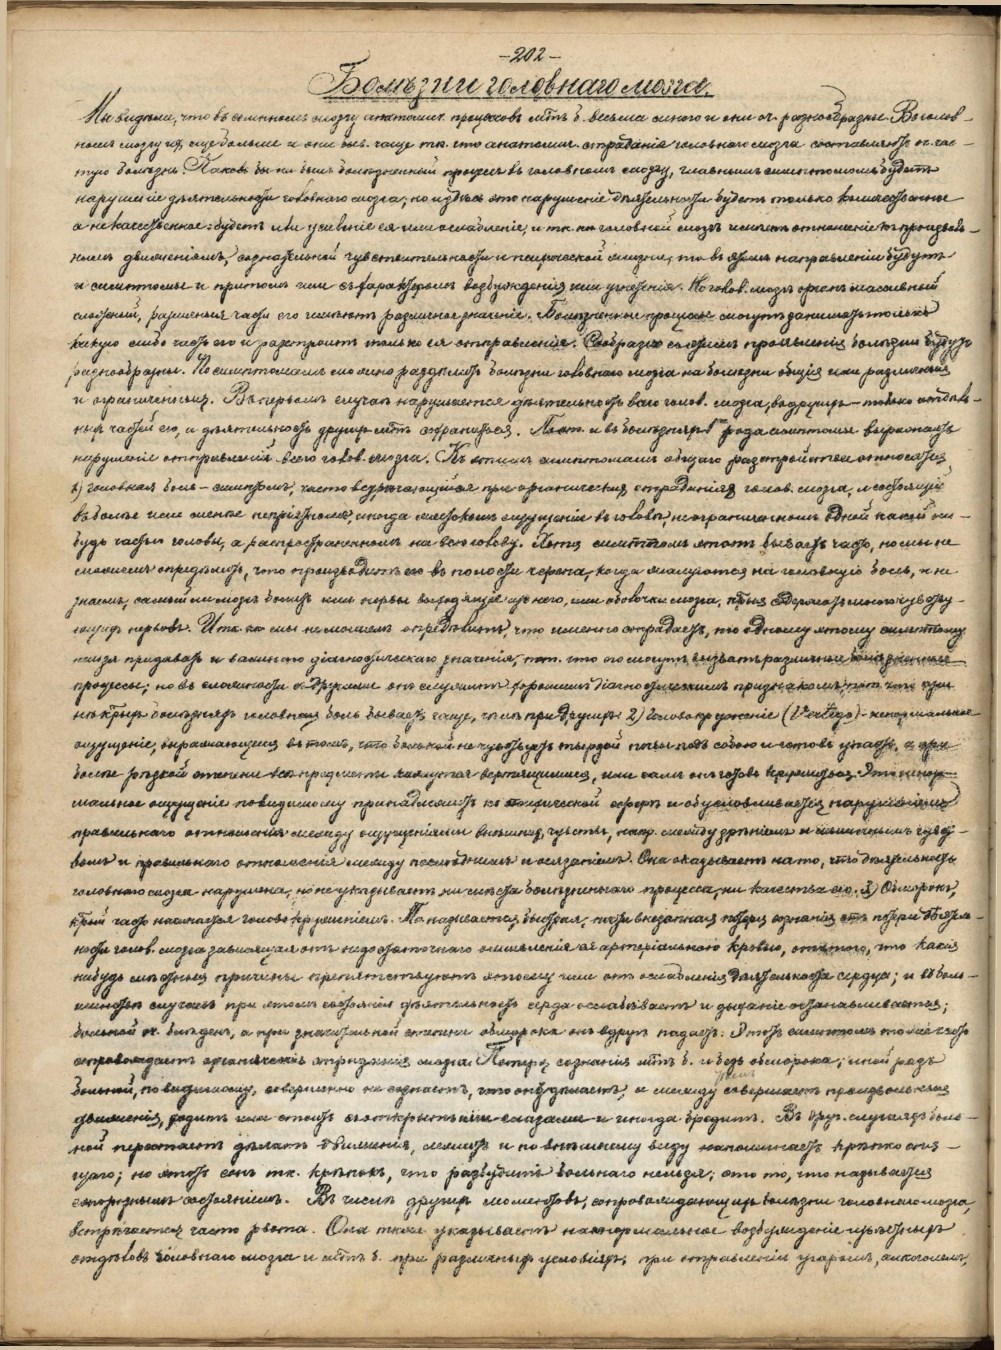 -202-
Болѣзни головнаго мозга.
Мы видѣли, что въ спинномъ мозгу анатомич. процессовъ мѣтъ б. весьма много и они оч. разнообразны. Въ голов-
номъ мозгу ихъ еще больше и они быв. чаще тк. что анатомич. страданія головнаго мозга составляютъ оч. час-
тую болѣзнь. Каковъ бы ни былъ болѣзненный процессъ въ головномъ мозгу, главнымъ симптомомъ будетъ
нарушеніе дѣятельности головнаго мозга, но и здѣсь это нарушеніе дѣятельности будетъ только количественное
а не качественное: будетъ или усиленіе ея или ослабленіе, и тк. кк. головной мозгъ имѣетъ отношеніе къ произволь-
нымъ движеніямъ, сознательной чувствительности и психической жизни, то въ этомъ направленіи будутъ
и симптомы и притомъ или съ характеромъ возбужденія или угнетенія. Но голов. мозгъ органъ массивный
сложный, различныя части его имѣютъ различное значеніе. Болѣзненные процессы могутъ занимать только
какую либо часть его и разстроить только ея отправленія. Сообразно съ этимъ проявленія болѣзни будутъ
разнообразны. По симптомамъ можно раздѣлить болѣзни головнаго мозга на болѣзни общія или различныя
и ограниченныя. Въ первомъ случаѣ нарушается дѣятельность всего голов. мозга, во другихъ – только отдѣль-
ныхъ частей его, а дѣятельность другихъ мѣтъ сохраниться. и въ болѣзняхъ рода симптомы выражаютъ
нарушеніе отправленій всего голов. мозга. Къ этимъ симптомамъ общаго разстройства относятся
1) головная боль – симптомъ, часто встрѣчающійся при органическихъ страданіяхъ голов. мозга, и состоящій
въ болѣе или менѣе непріятномъ, иногда жестокомъ ощущеніи въ головѣ, не ограниченномъ одной какой ни-
будь частью головы, а распространенномъ на всю голову. Хотя симптомъ этотъ бываетъ часто, но мы не
можемъ опредѣлить, что производитъ его въ полости черепа, когда жалуются на головную боль, и не
знаемъ, самый ли мозгъ болитъ или нервы выходящіе изъ него, или оболочки мозга, ктрыя содержатъ много чувству-
ющихъ нервовъ. И тк. кк. мы не можемъ опредѣлить, что именно страдаетъ, то одному этому симптому
нельзя придавать и важнаго діагностическаго значенія, птм. что его могутъ вызвать различные болѣзненные
процессы; но въ сложности съ другими онъ служитъ хорошимъ діагностическимъ признакомъ, птм. что при
нѣктрыхъ болѣзняхъ головная боль бываетъ чаще, чѣмъ при другихъ. 2) Головокруженіе (Vertigo) – ненормальное
ощущеніе, выражающееся въ томъ, что больной не чувствуетъ твердой почвы подъ собою и готовъ упасть, а при
болѣе рѣзкой степени всѣ предметы кажутся вертящимися, или самъ онъ готовъ кружиться. Это ненор-
мальное ощущеніе повидимому принадлежитъ къ психической сферѣ и обусловливается нарушеніемъ
правильнаго отношенія между ощущеніями внѣшнихъ чувствъ, напр. между зрѣніемъ и мышечнымъ чувст-
вомъ и правильнаго отношенія между послѣднимъ и осязаніемъ. Оно указываетъ на то, что дѣятельность
головнаго мозга нарушена, но не указываетъ ни мѣста болѣзненнаго процесса, ни качества его. 3) Обморокъ,
ктрый часто начинается головокруженіемъ. Такъ называется быстрая, почти внезапная потеря сознанія отъ потери дѣятель-
ности голов. мозга зависящая отъ недостаточнаго оживленія ея артеріальною кровью, оттого, что какія
нибудь мѣстныя причины препятствуютъ этому или отъ ослабленія дѣятельности сердца; и въ боль-
шинствѣ случаевъ при этомъ состояніи дѣятельность сердца ослабѣваетъ и дыханіе останавливается;
больной оч. блѣденъ, а при значительной степени обморока онъ вдругъ падаетъ. Этотъ симптомъ также часто
сопровождаетъ органическія страданія мозга. Потеря сознанія мѣтъ б. и безъ обморока; иной разъ
больной, повидимому, совершенно не сознаетъ, что онъ дѣлаетъ, а между тѣмъ совершаетъ произвольныя
движенія, ходитъ или стоитъ съ открытыми глазами и иногда бредитъ. Въ друг. случаяхъ боль-
ной перестаетъ дѣлать движенія, лежитъ и по внѣшнему виду напоминаетъ крѣпко спя-
щаго; но этотъ сонъ тк. крѣпокъ, что разбудить больнаго нельзя; это то, что называется
сопорознымъ состояніемъ. Въ числѣ другихъ моментовъ, сопровождающихъ болѣзни головнаго мозга,
встрѣчается часто рвота. Она также указываетъ на ненормальное возбужденіе извѣстныхъ
отдѣловъ головнаго мозга и мѣтъ б. при различныхъ условіяхъ; при отравленіи угаромъ, алкоголемъ,